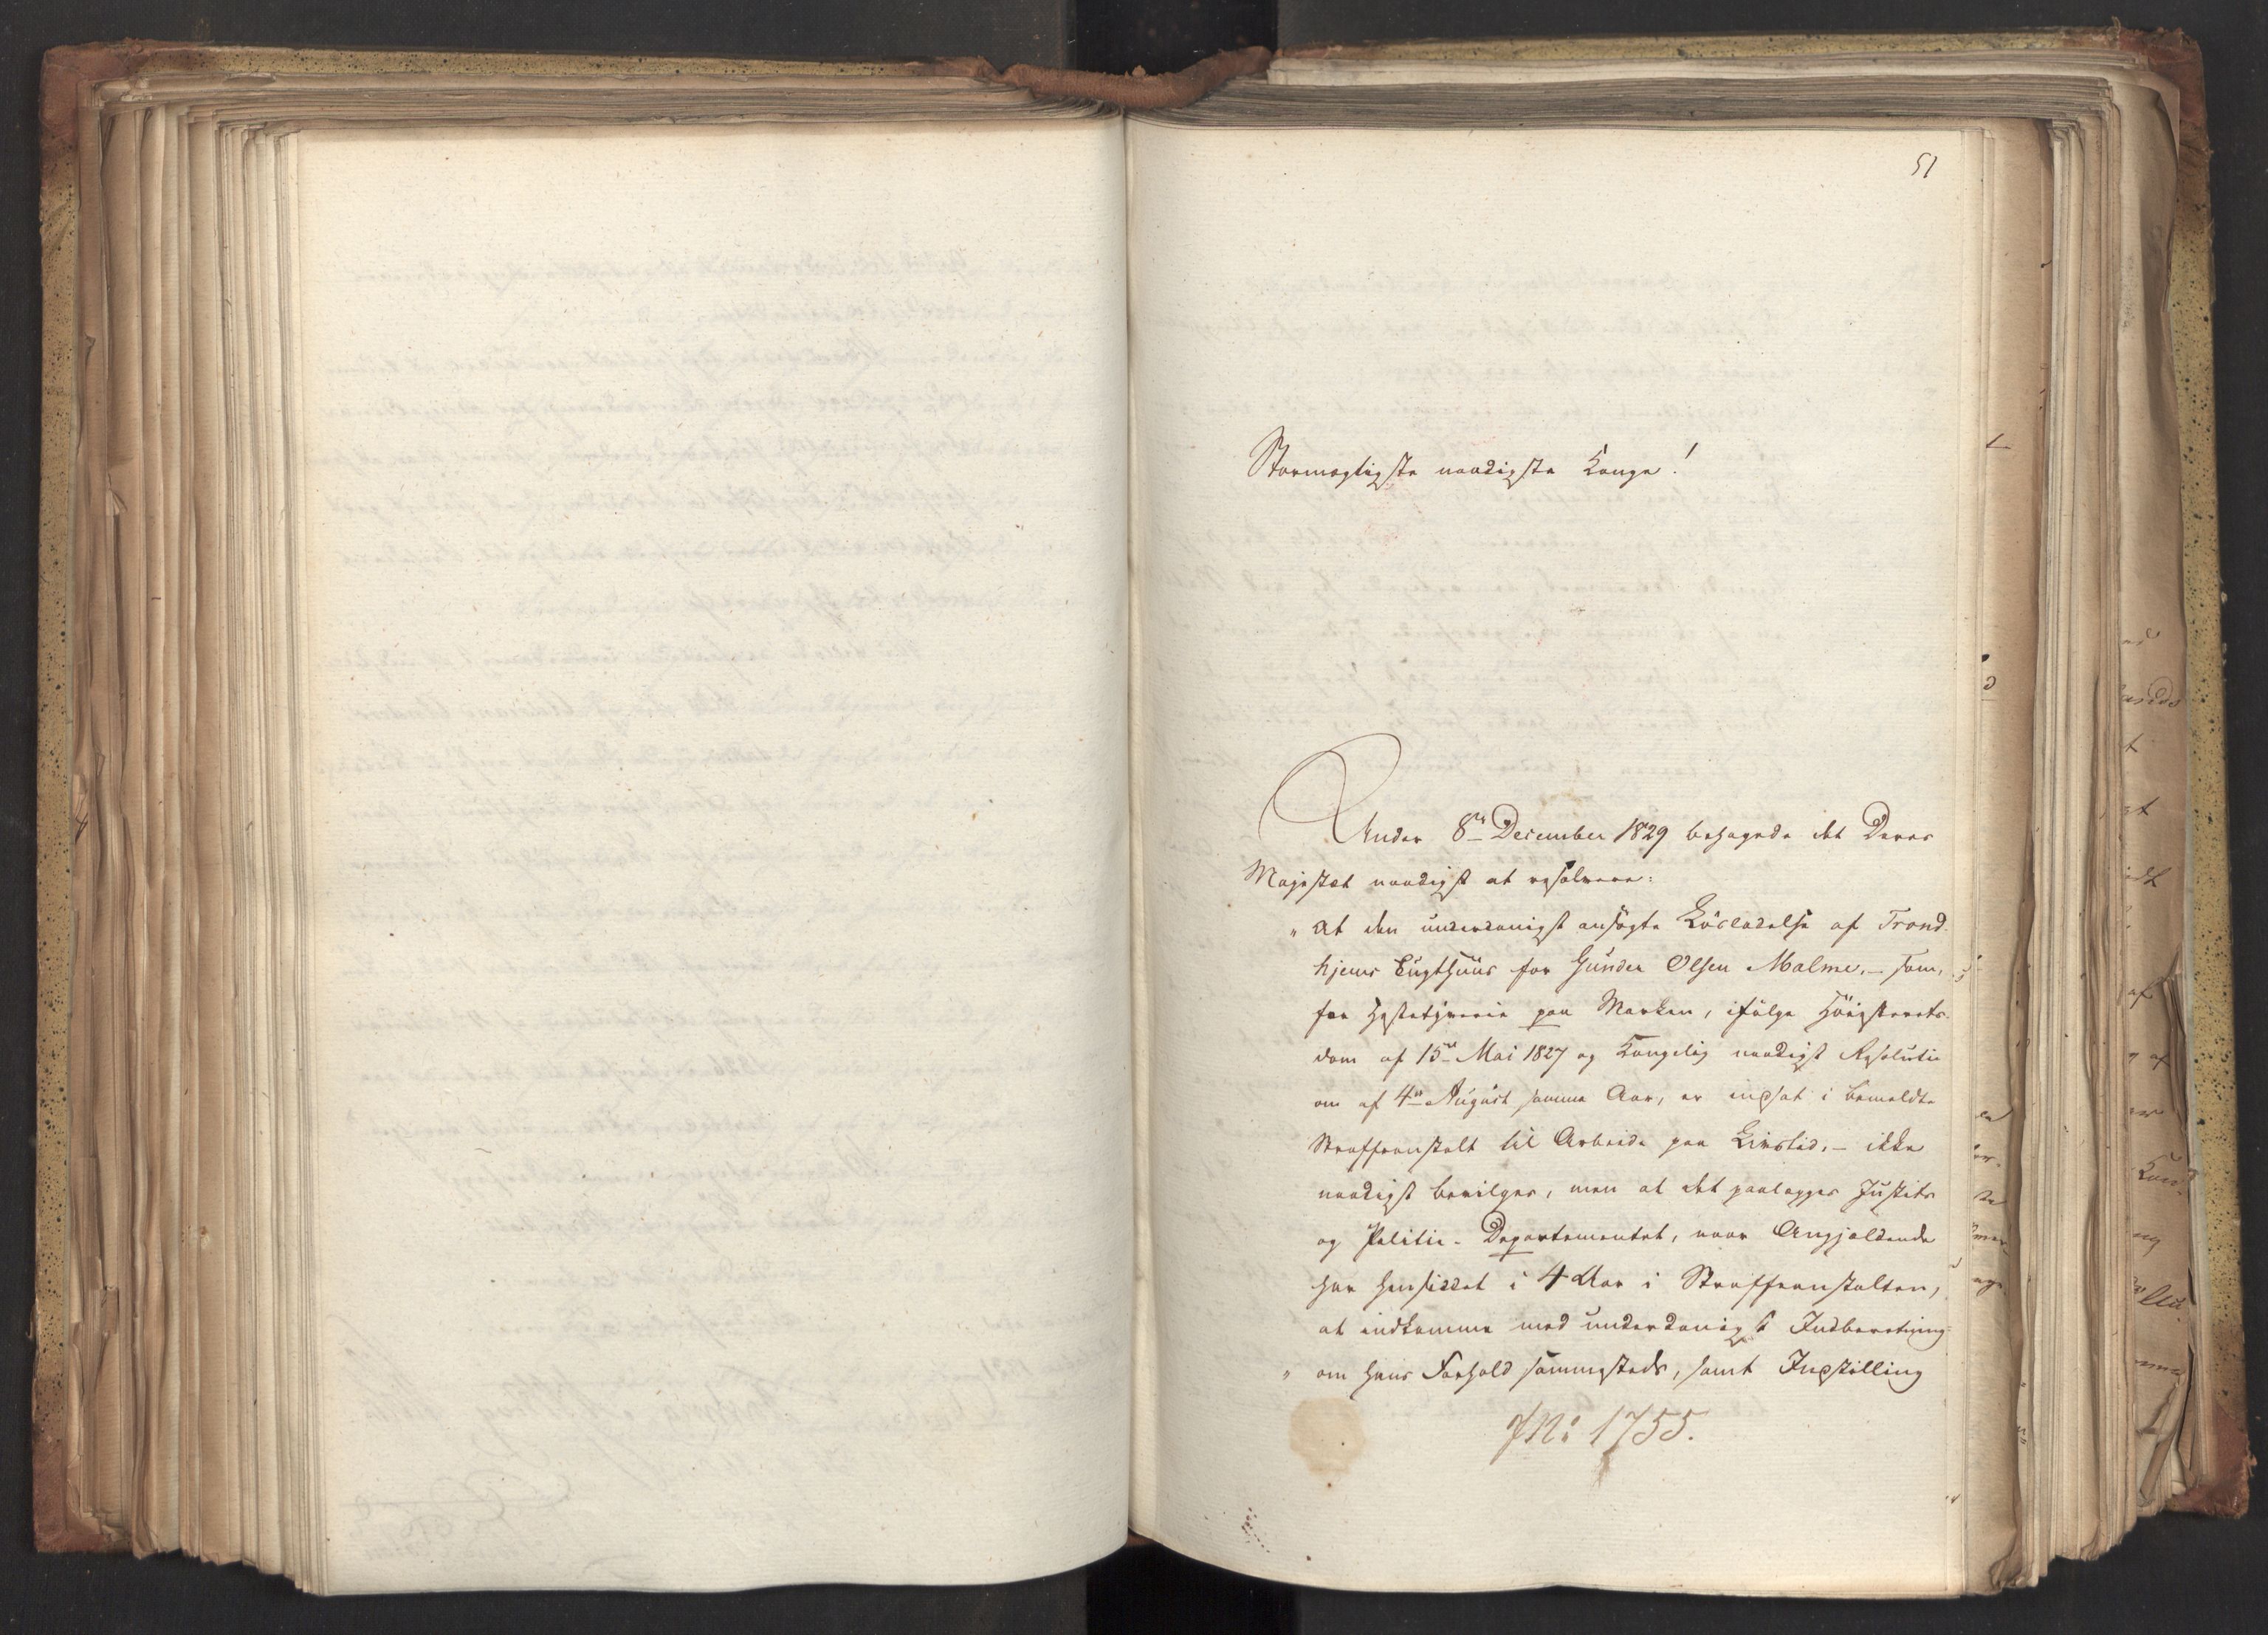 51
Stormægtigste naadigste Konge!
Under 8de December 1829 behagede det Deres
Majestæt naadigst at resolvere:
„At den underdanigst ansøgte Løsladelse af Trond-
hjems Tugthuus for Gunder Olsen Malme, – som,
for Hestetyverie paa Marken, ifølge Høiesterets-
dom af 15de Mai 1827 og Kongelig naadigst Resoluti-
on af 4de August samme Aar, er indsat i bemeldte
Straffeanstalt til Arbeide paa Livstid, – ikke
naadigst bevilges, men at det paalægges Justits
og Politie-Departementet, naar Angjældende
har hensiddet i 4 Aar i Straffeanstalten,
at indkomme med underdanigst Indberetning
„ om hans Forhold sammesteds, samt Indstilling
JN: 1755.